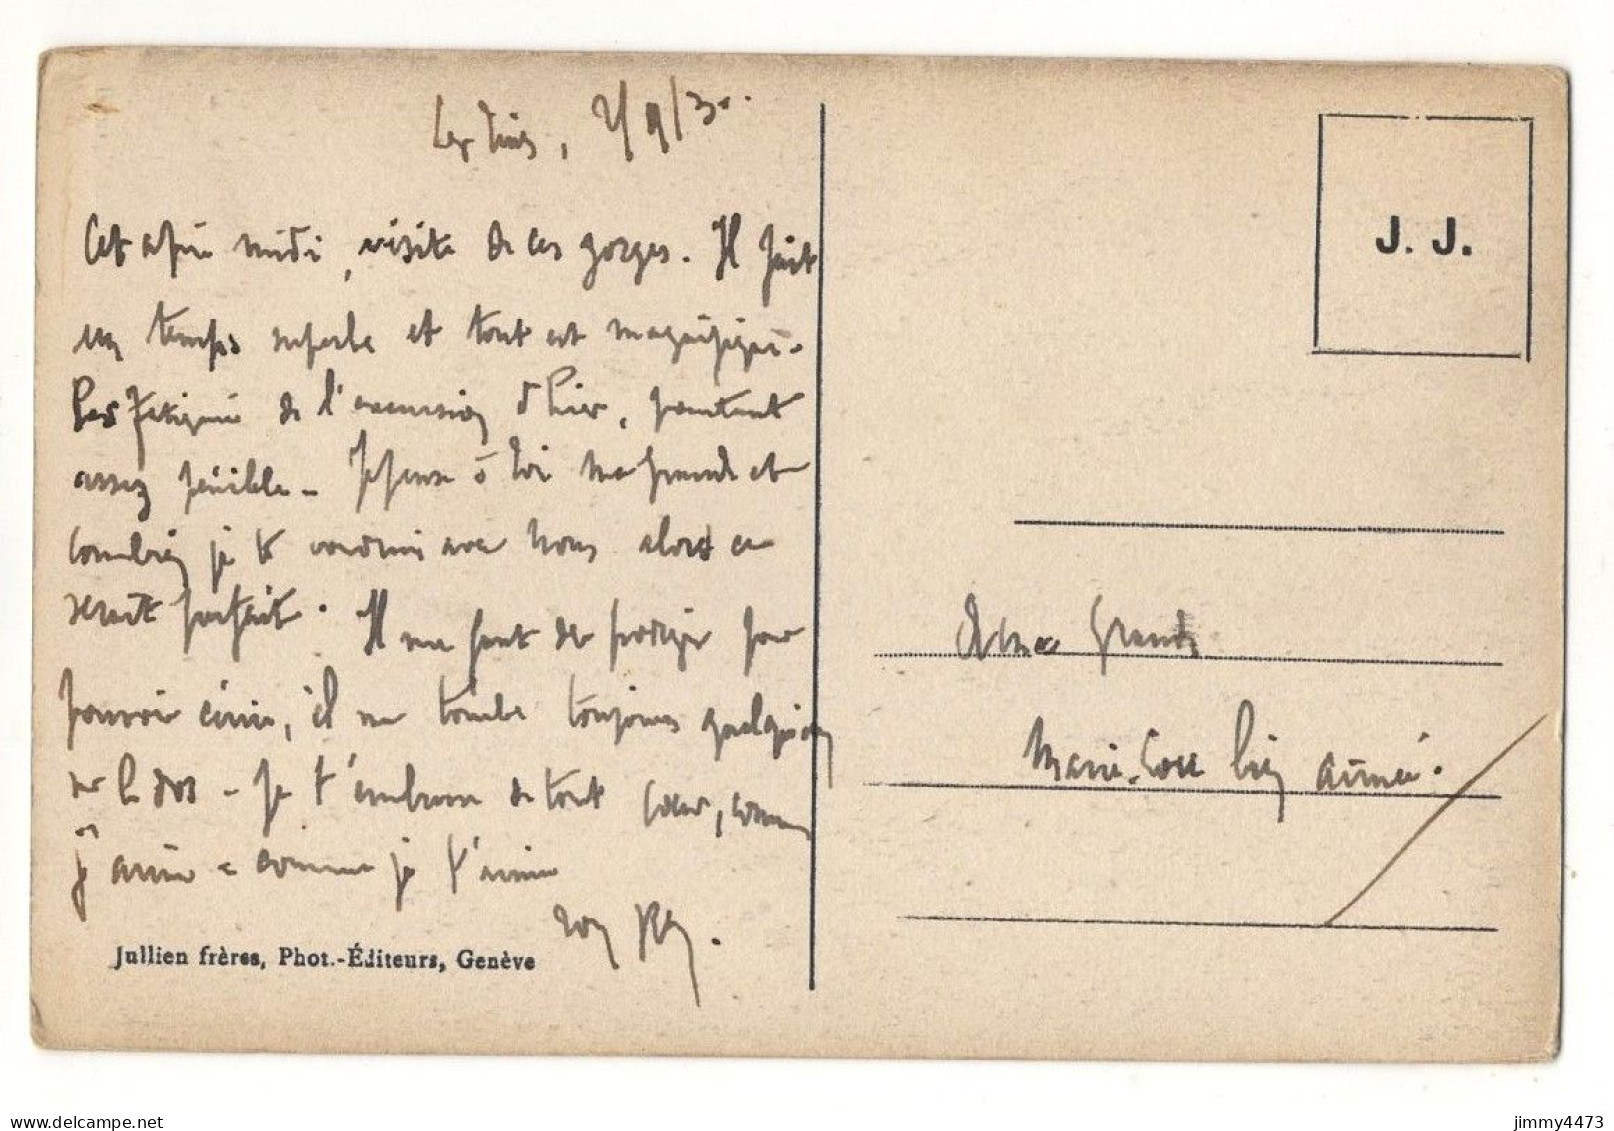 Les Tines, 2/9/30.
Cet après midi, visite de ces gorges. Il fait
un temps superbe et tout est magnifique.
Pas fatigué de l'excursion d'hier, pourtant
assez pénible - Je pense à toi ma grande et
combien je te voudrais avec nous alors ce
serait parfait. Il me faut des prodiges pour
pouvoir écrire, il me tombe toujours quelqu'un
sur le dos - Je t'embrasse de tout cœur, comme
j'aime - comme je t'aime
ton
Jullien frères, Phot.-Éditeurs, Genève
J. J.
A ma Grande
Marie-Lou bien aimée.
jimmy4473
www.delcampe.net